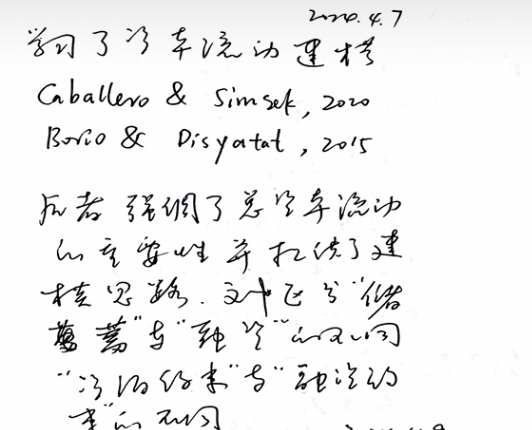 2020.4.7
学习了资本流动建模
Caballero & Simsek, 2020
Borio & Disyatat, 2015
后者强调了总资本流动
的重要性并提供了建
模思路.
蓄"与"融资"的不同
"与"融资约
束"的不同